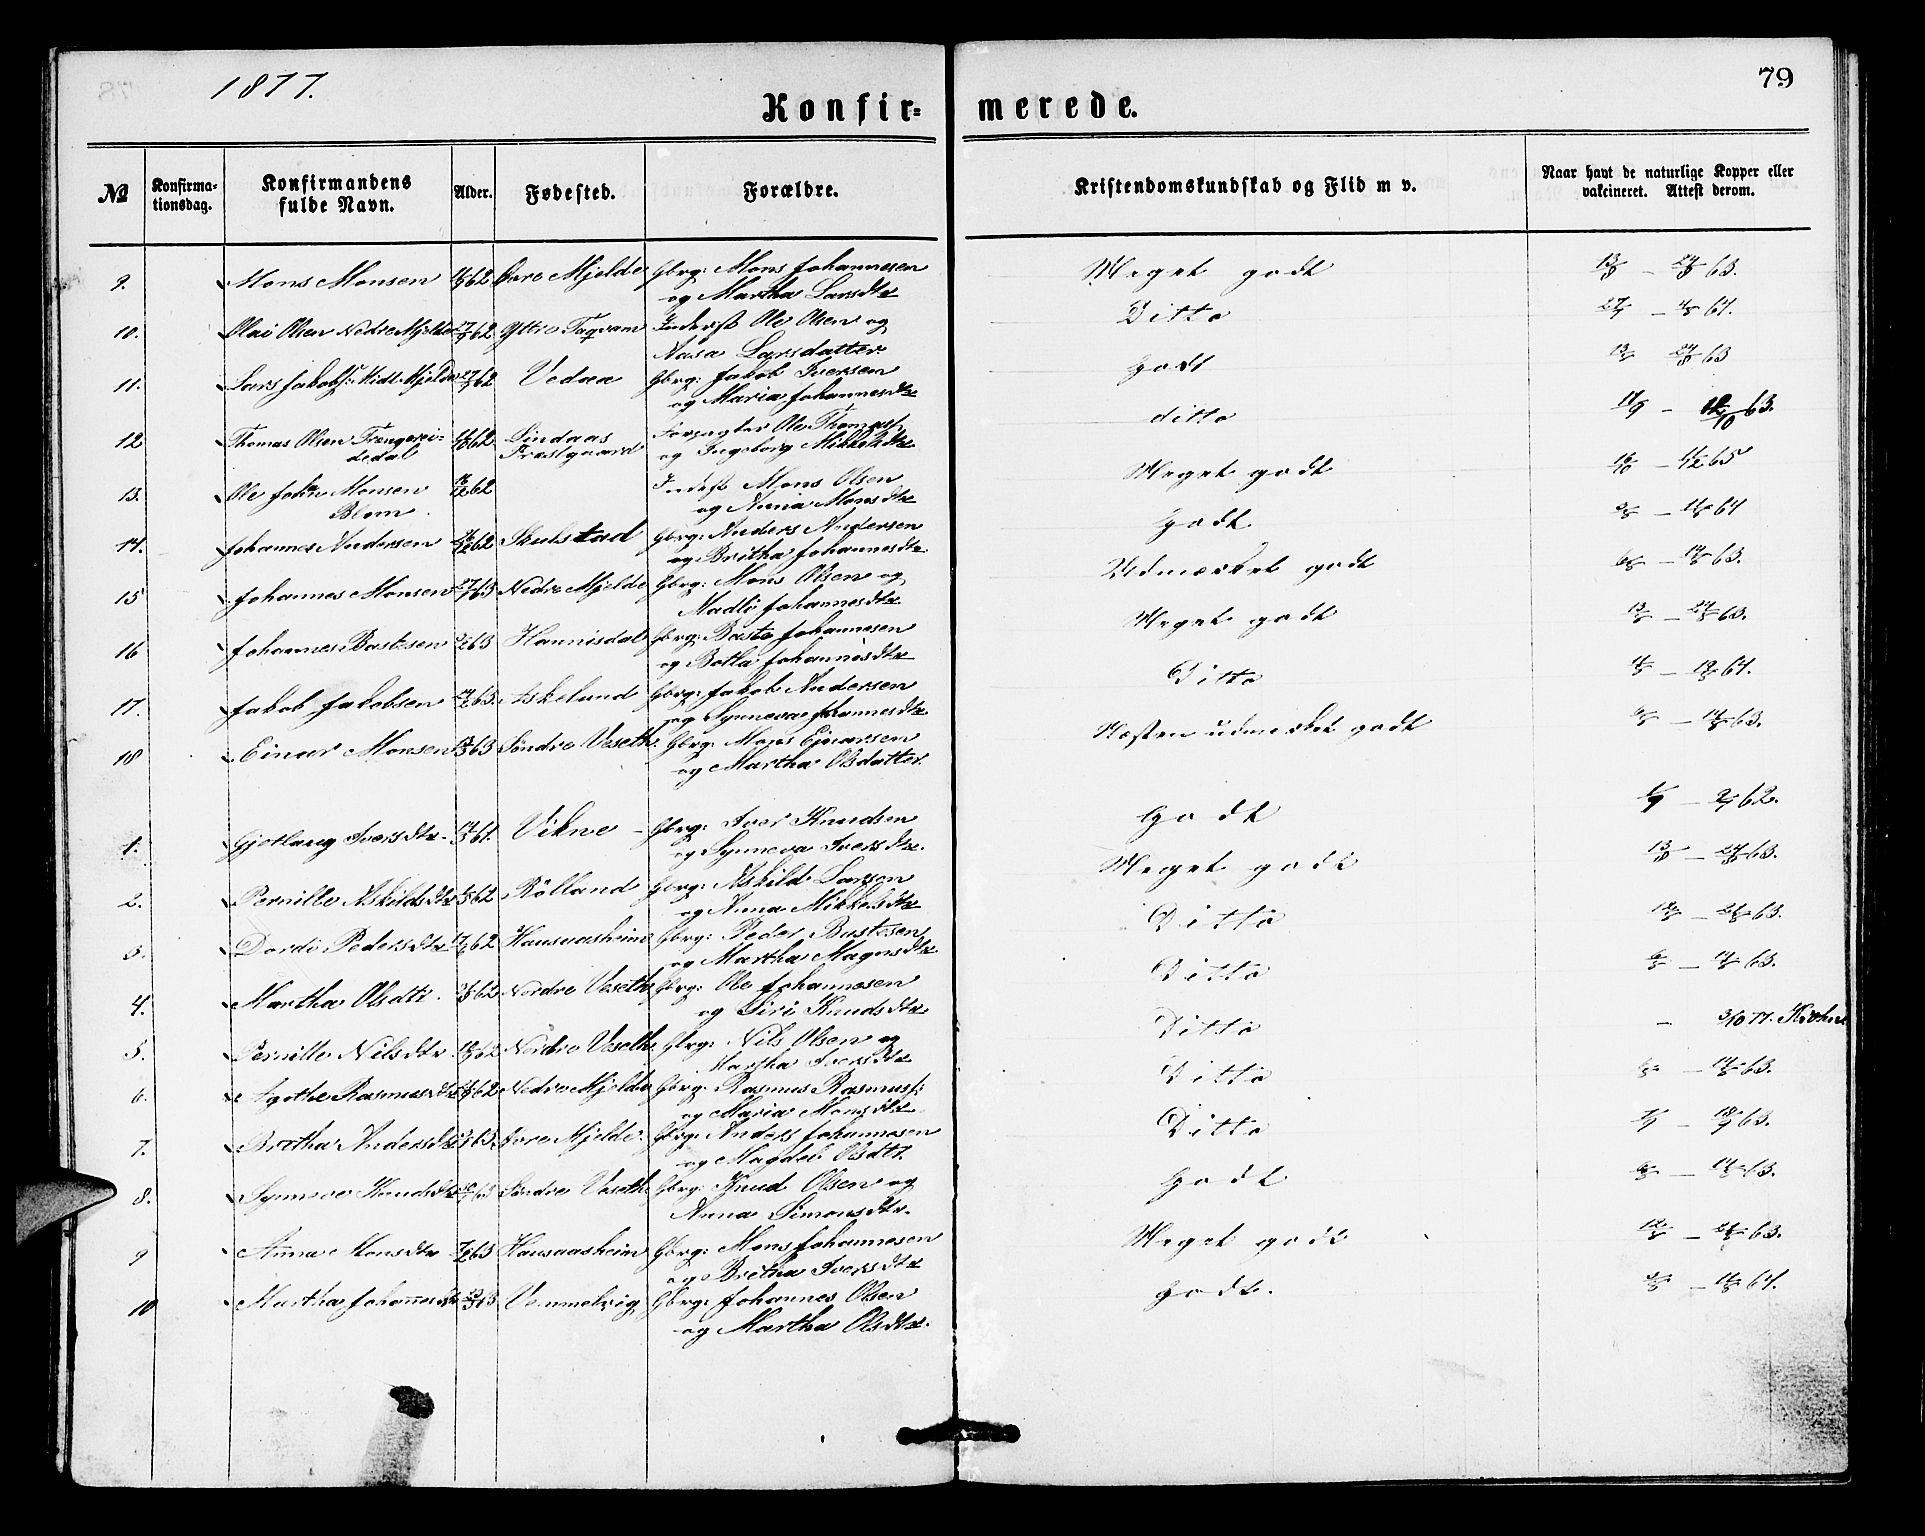 1877.
79
Konfir=
merede.
№
Konfirma=
tionsdag.
Konfirmandens
fulde Navn.
Alder.
Fødested.
Forældre.
Kristendomskundskab og Flid m v.
Naar havt de naturlige Kopper eller
vakcineret. Attest derom.
9. Mons Monsen 62 Øvre Mjelde Gbrg: Mons Johannesen
og Martha Larsdtr
Meget godt 63.
10. Olai Olsen Nedre Mjelde 62 Yttre Taqvam Inderst Ole Olsen og
Aasa Larsdatter
Ditto 64.
11. Lars Jakobs: Midt Mjelde 62 Vedaa Gbrg: Jakob Iversen
og Maria Johannesdtr
Godt 63
12 Thomas Olsen Trengerei=
dedal
62 Lindaas
Præstgaard
Forpagter Ole Thomas:
og Ingeborg Mikkelsdtr
ditto 63.
13. Ole Johan Monsen
Blom.
62 Inderst Mons Olsen
og Anna Monsdtr
Meget godt 65
14. Johannes Andersen 62 Skulstad Gbrg: Anders Andersen
og Britha Johannesdtr
Godt. 64
15 Johannes Monsen 63 Nedre Mjelde Gbrg: Mons Olsen og
Madli Johannesdtr
Udmærket godt 63.
16 Johannes Bastesen 63 Hannisdal Gbrg: Baste Johannesen
og Botla Johannesdtr
Meget godt 63.
17. Jakob Jakobsen 63. Askelund Gbrg: Jakob Andersen
og Synneva Johannesdtr
Ditto 64.
18 Einar Monsen 63 Søndre Veseth. Gbrg: Mons Einarsen
og Martha Olsdatter.
Næsten udmerket godt 63.
1. Gjetlaug Iversdtr. 61. Vikne Gbrg: Iver Knudsen
og Synneva Iversdtr.
Godt 62.
2. Pernille Askildsdtr 62 Rölland Gbrg: Askild Larsen
og Anna Mikkelsdtr
Meget godt 63.
3. Dordi Pedersdtr 62 Hausaasheim Gbrg: Peder Bastesen
og Martha Magnsdtr
Ditto 63.
4. Martha Olsdtr. 62 Nordre Veseth Gbrg: Ole Johannesen
og Siri Knudsdtr
Ditto 63.
5. Pernille Nilsdtr. 62 Nordre Veseth. Gbrg: Nils Olsen og
Martha Iversdtr
Ditto 3/10 77.
6. Agathe Rasmusdtr 62 Nedre Mjelde Gbrg: Rasmus Rasmuss:
og Maria Monsdtr
Ditto 63.
7. Bretha Andersdtr 63. Øvre Mjelde. Gbrg: Anders Johannesen
og Magdel: Olsdtr.
Ditto 63.
8. Synneve Knudsdtr 63 Søndre Veseth Gbrg: Knud Olsen og
Anna Simonsdtr.
Godt 63.
9 Anna Monsdtr 63 Hausaasheim Gbrg: Mons Johannesen
og Bretha Iversdtr
Meget godt 63.
10 Martha Johannesdtr 63 Vemmelvig Gbrg: Johannes Olsen
og Martha Olsdtr.
Godt. 64.